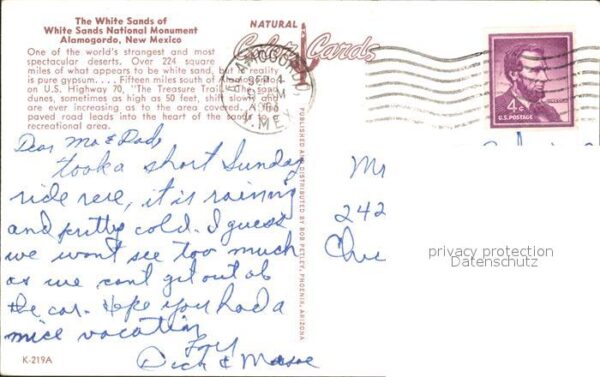 The White Sands of
White Sands National Monument
Alamogordo, New Mexico
One of the world's strangest and most
spectacular deserts. Over 224 square
miles of what appears to be white sand, but in reality
is pure gypsum.... Fifteen miles south of
on U.S. Highway 70, "The Treasure Trail
dunes, sometimes as high as 50 feet, shift slowly and
are ever increasing as to the area covered. A
paved road leads into the heart of the sands to the
recreational area.
Dear Mo & Dad,
Took a short Sunday
ride here, it is raining
and pretty cold. I guess
we wont see too much
as we cant get out of
the car. Hope you had a
nice vacation
Dick &
K-219A
NATURAL
Color Cards
PUBLISHED AND DISTRIBUTED BY BOB PETLEY, PHOENIX, ARIZONA
ALAMOGORDO
N. MEX
4¢
U.S. POSTAGE
Mr
242
privacy protection
Datenschutz